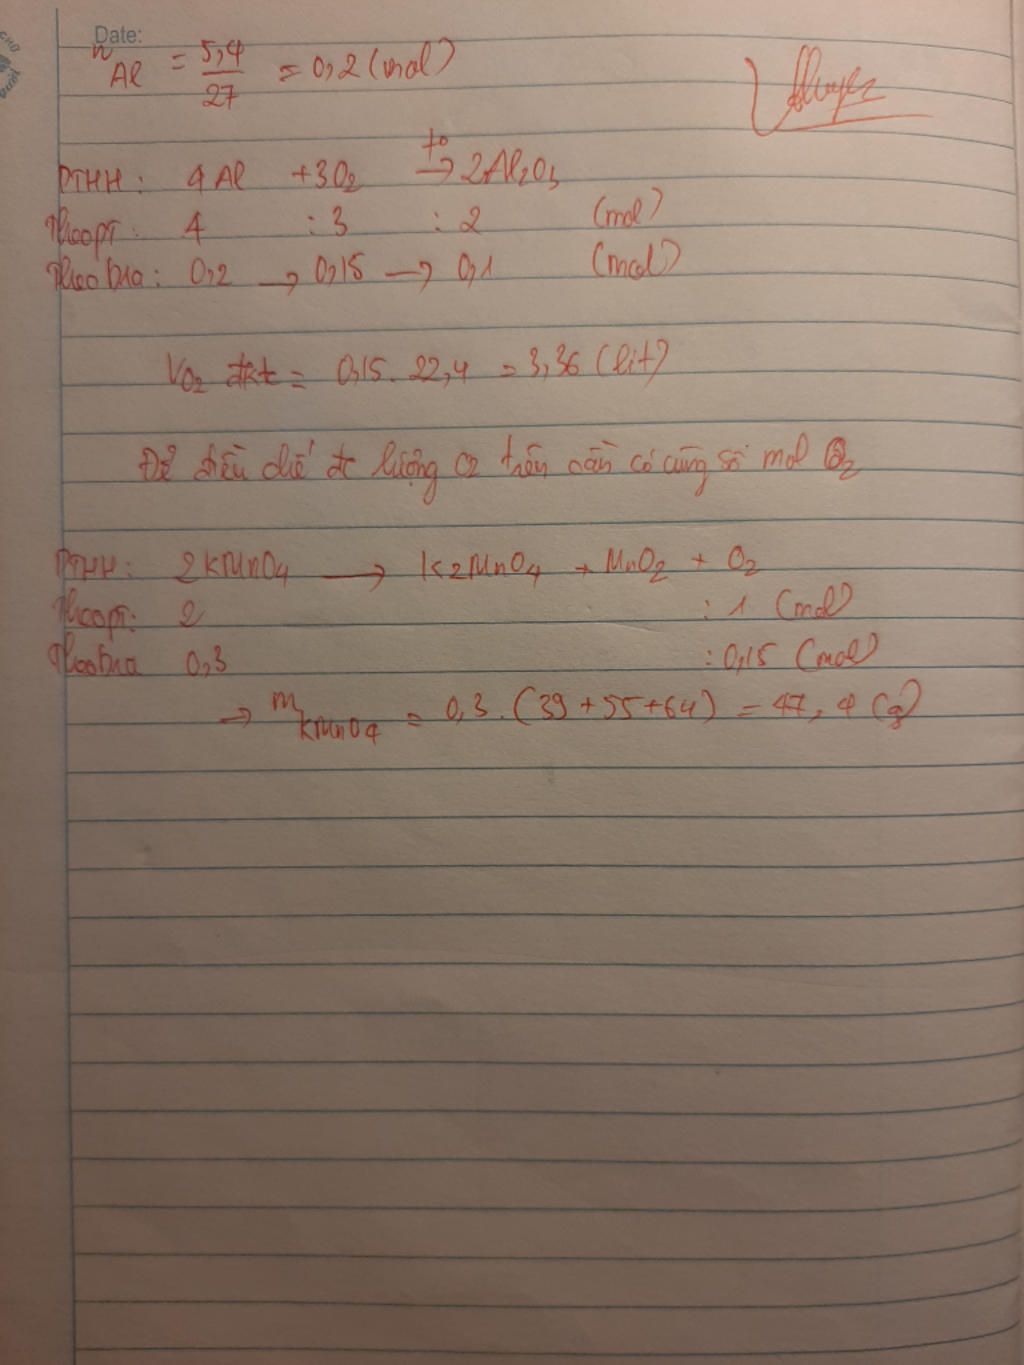 Date:
n Al = 5,4 / 27 = 0,2 (mol)
PTHH: 4Al + 3O2 t° → 2Al2O3
Theo PT: 4 : 3 : 2 (mol)
Theo bài: 0,2 → 0,15 → 0,1 (mol)
VO2 đktc = 0,15. 22,4 = 3,36 (lit)
Để điều chế đc lượng O2 trên cần có cùng số mol O2
PTHH: 2KMnO4 → K2MnO4 + MnO2 + O2
Theo PT: 2 : 1 (mol)
Theo bài 0,3 : 0,15 (mol)
→ m KMnO4 = 0,3. (39+55+64) = 47,4 (g)